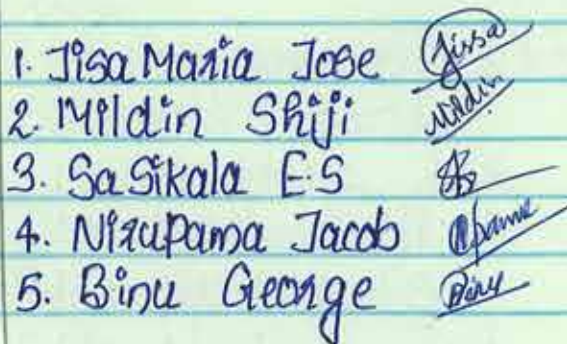 1. Jisa Maria Jose Jissa
2. Mildin Shiji Mildin
3. Sasikala E S
4. Nirupama Jacob
5. Binu George Binu